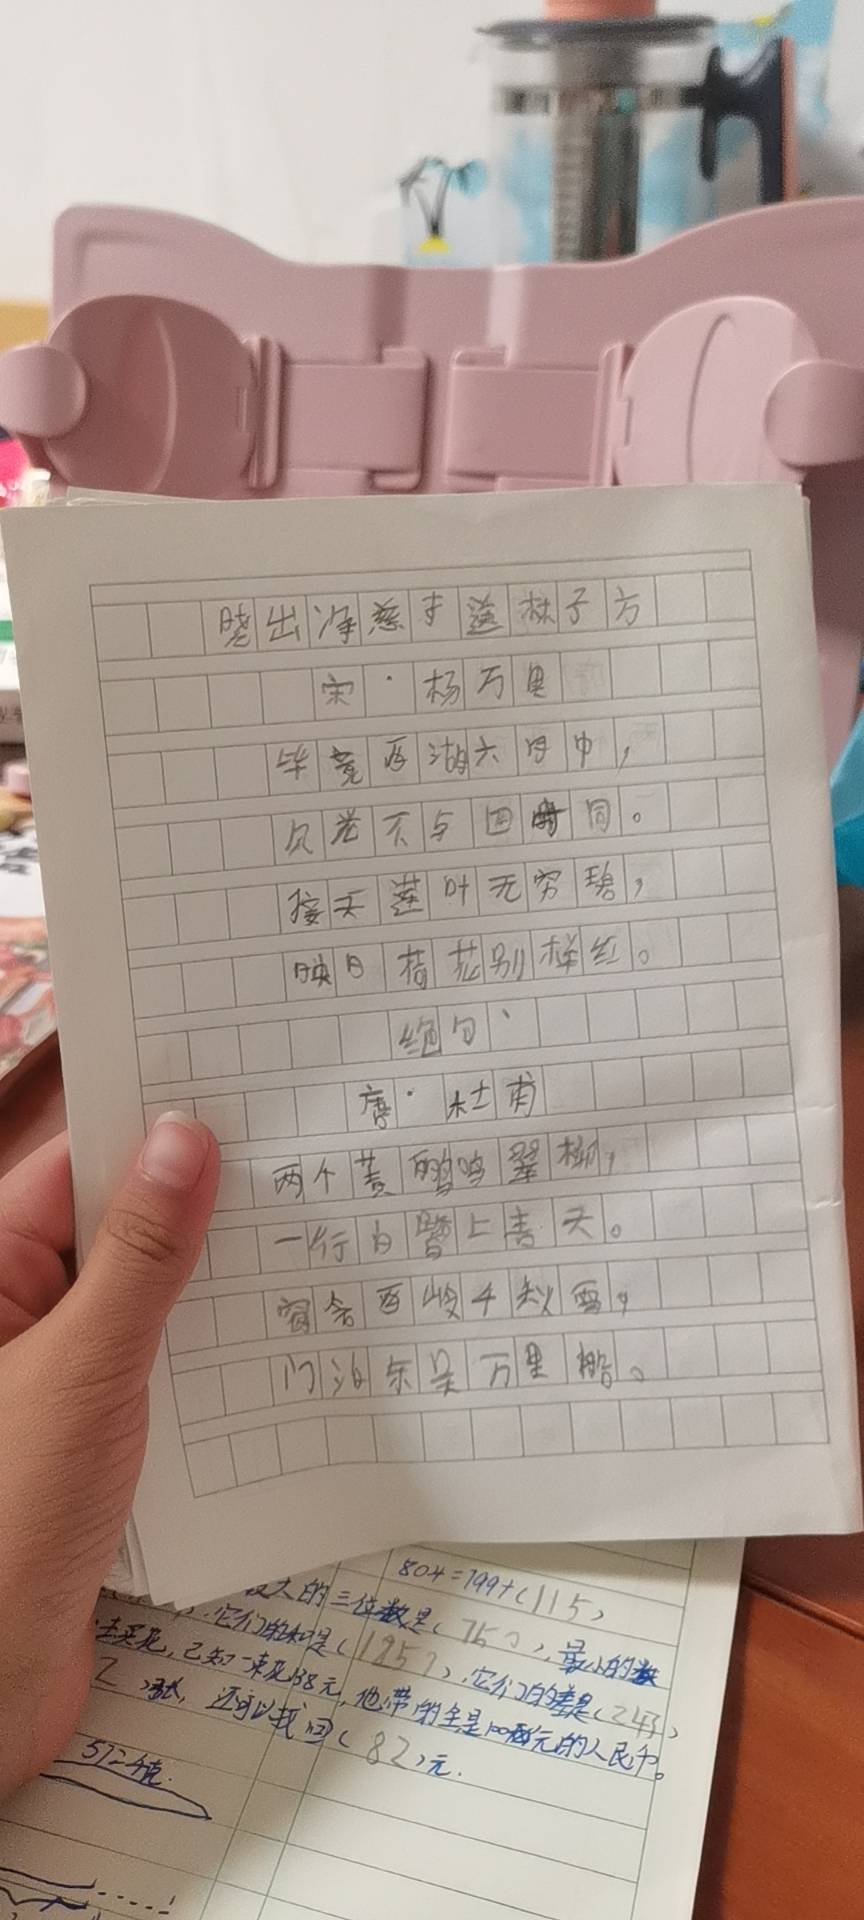 晓出净慈寺送林子方
宋·杨万里
毕竟西湖六月中，
风光不与四时同。
接天莲叶无穷碧，
映日荷花别样红。
绝句
唐·杜甫
两个黄鹂鸣翠柳，
一行白鹭上青天。
窗含西岭千秋雪，
门泊东吴万里船。
804=799+(115)
大的三位数是(750)，最小的数
，它们的和是(1257)，它们的差是(243)
去买花，已知一束花138元，他带的全是100元的人民币。
2)张，还可以找回(82)元.
572千克.